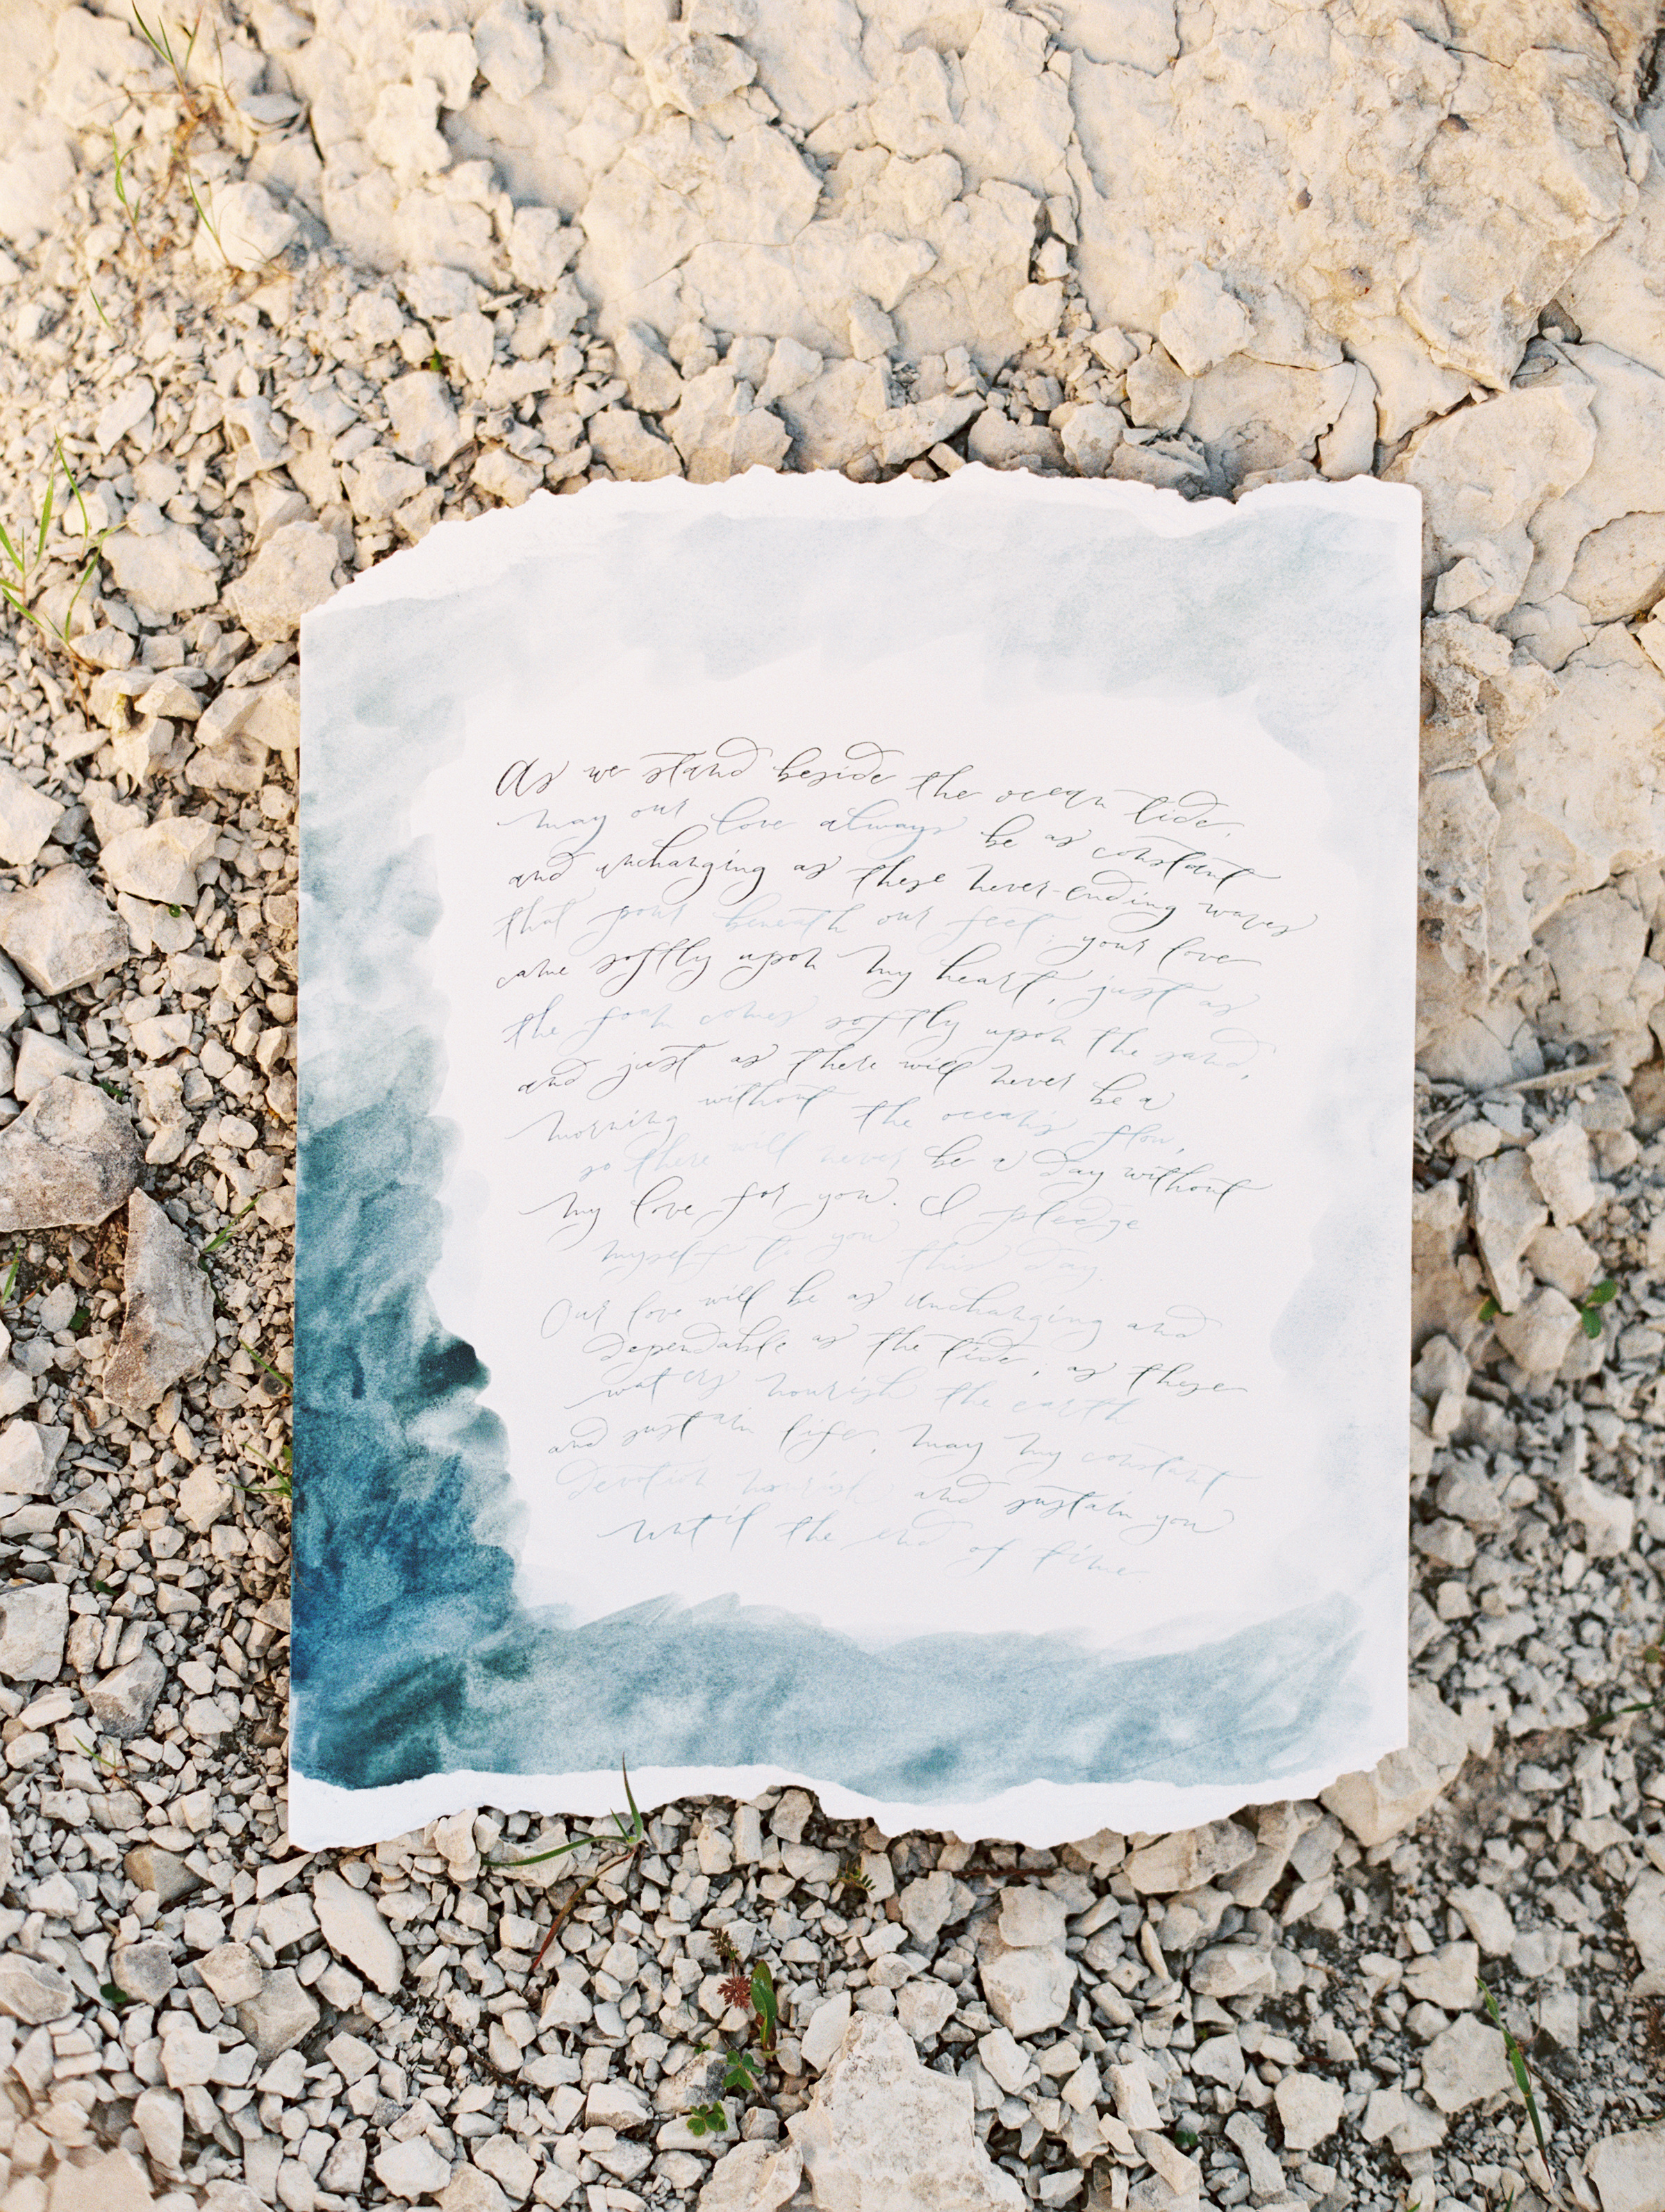 As we stand beside the ocean tide,
may our love always be as constant
and unchanging as these never-ending waves
that pour beneath our feet; your love
came softly upon my heart, just as
the foam comes softly upon the sand,
and just as there will never be a
morning without the ocean's flow,
so there will never be a day without
my love for you. I pledge
myself to you this day.
Our love will be as unchanging and
dependable as the tide, as these
waters nourish the earth
and sustain life, may my constant
devotion nourish and sustain you
until the end of time.